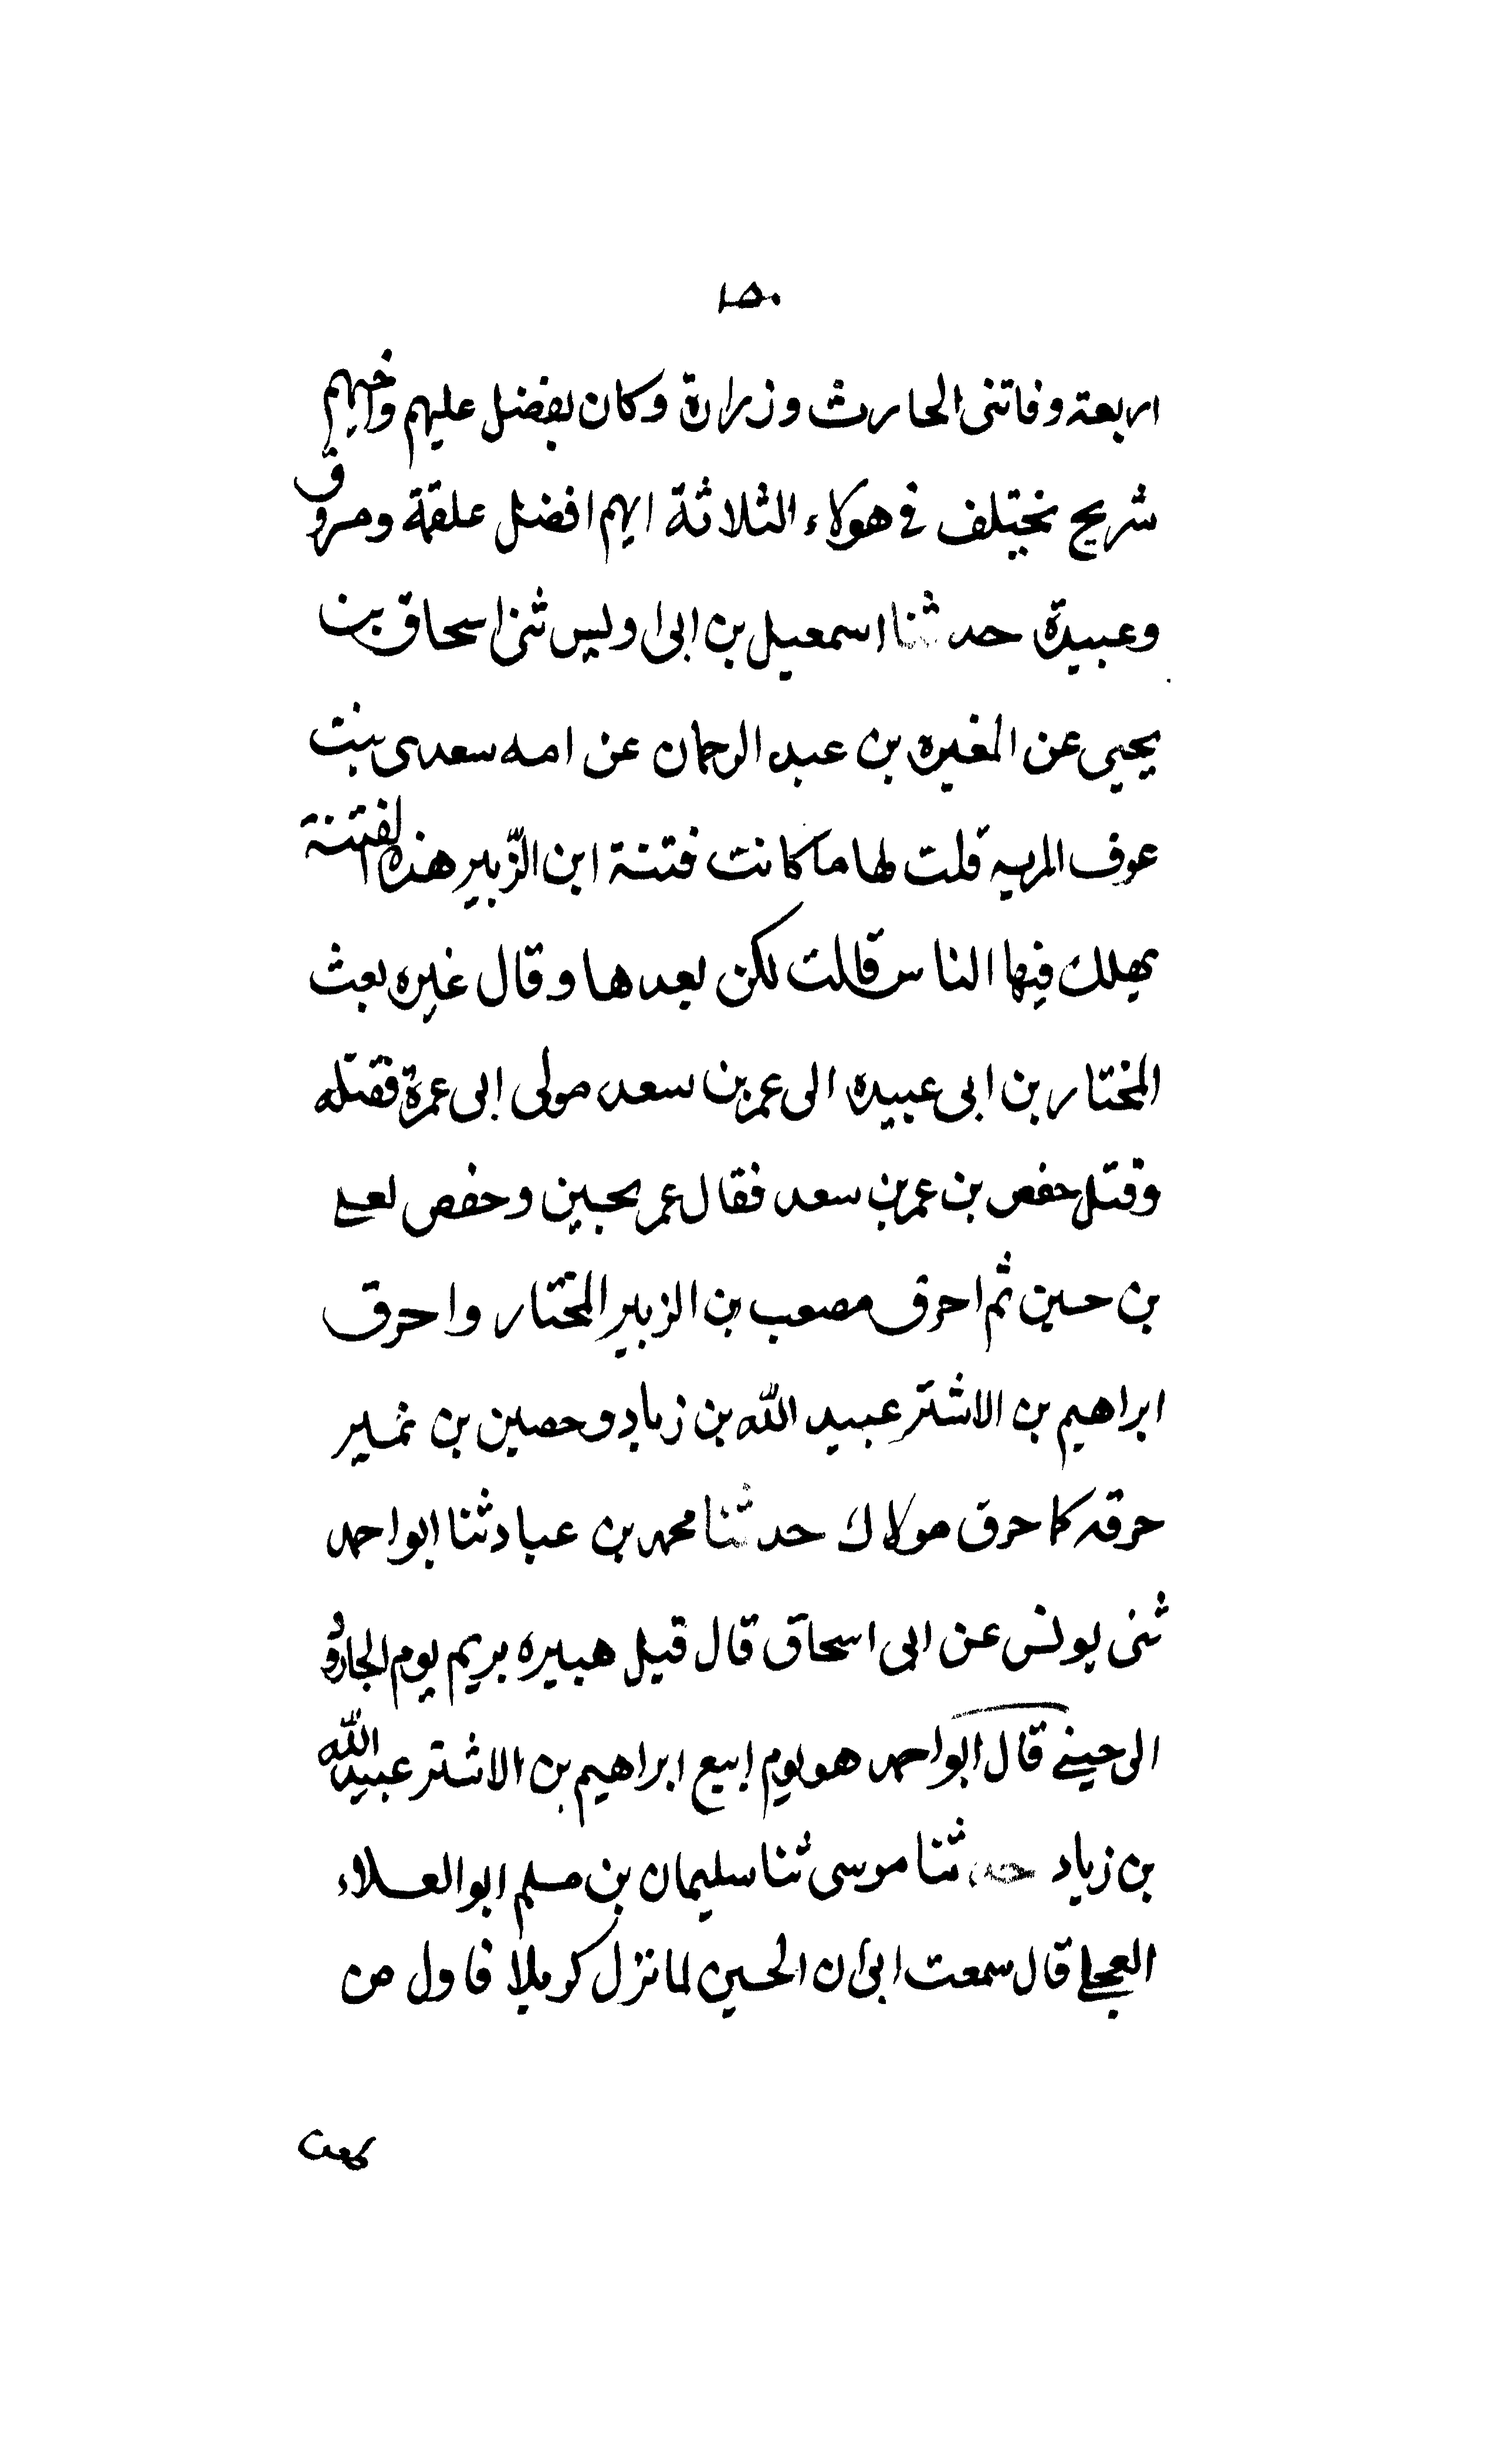 ١٥٠
اربعة وفاتنى الحارث وزرارة وكان يفضل عليهم واخيهم
شريح نختلف في هولاء الثلاثة ايهم افضل علقمة ومسروق
وعبيدة حدثنا اسمعيل بن ابى اويس ثنى اسحاق بن
يحيى عن المغيره بن عبد الرحمان عن امه سعدى بنت
عوف المريه قلت لها ما كانت فتنة ابن الزّبير هذه الفتنة
يهلك فيها الناس قالت لكن بعدها وقال غيره بعث
المختار بن ابى عبيده الى عمر بن سعد مولى ابى عمرة فقتله
وقتل حفص بن عمر بن سعد فقال عمر بحسين وحفص لعلى
بن حسين ثم احرق مصعب بن الزبير المختار واحرق
ابراهيم بن الاشتر عبيد الله بن زياد وحصين بن نمير
حرقه كما حرق مولاك حدثنا محمد بن عباد ثنا ابو احمد
ثنى يونس عن ابى اسحاق قال قيل هبيره بريم يوم الجازر
الى حيني قال ابو احمد هو يوم ابيع ابراهيم بن الاشتر عبيد الله
بن زياد حدثنا موسى ثنا سليمان بن مسلم ابو العلاء
العجلي قال سمعت ابى ان الحسين لما نزل كربلا فاول من